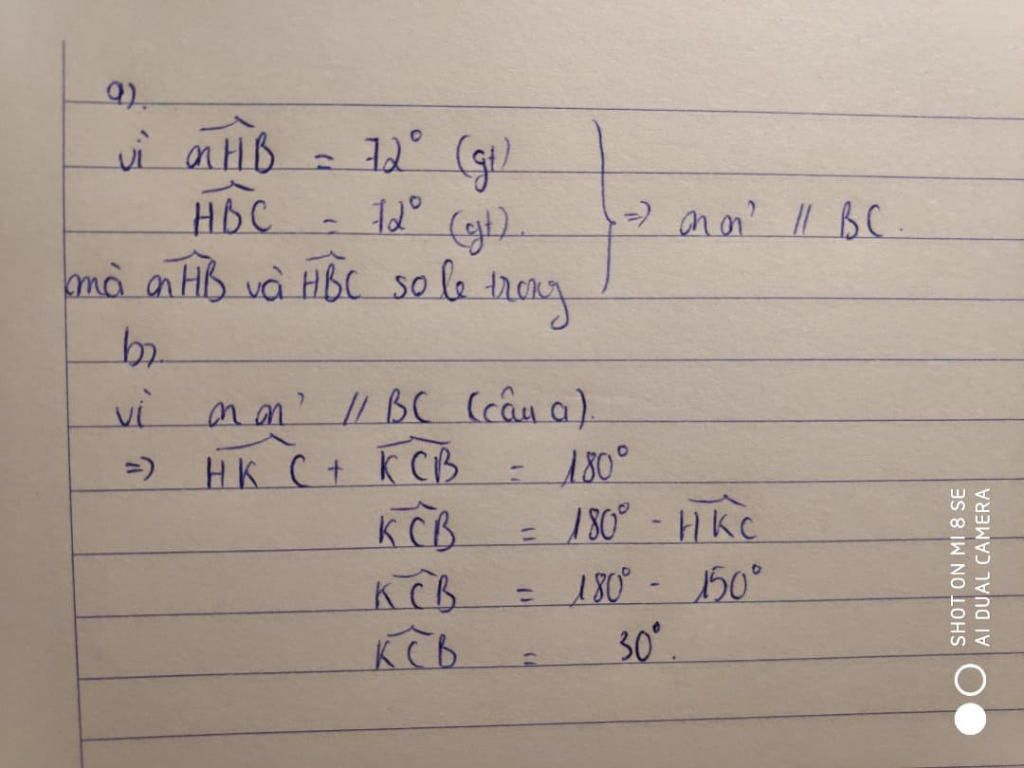 a).
vì m̂HB = 72° (gt)
HB̂C = 72° (gt).
mà mĤB và HB̂C so le trong
} => mm' // BC.
b).
vì mm' // BC (câu a).
=> HK̂C + KĈB = 180°
KĈB = 180° - HK̂C
KĈB = 180° - 150°
KĈB = 30°.
SHOT ON MI 8 SE
AI DUAL CAMERA